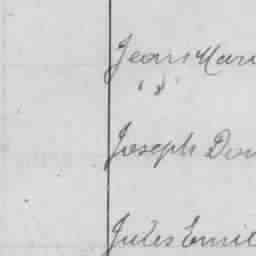 Jean Mari
" "
Joseph Don
Jules Emil